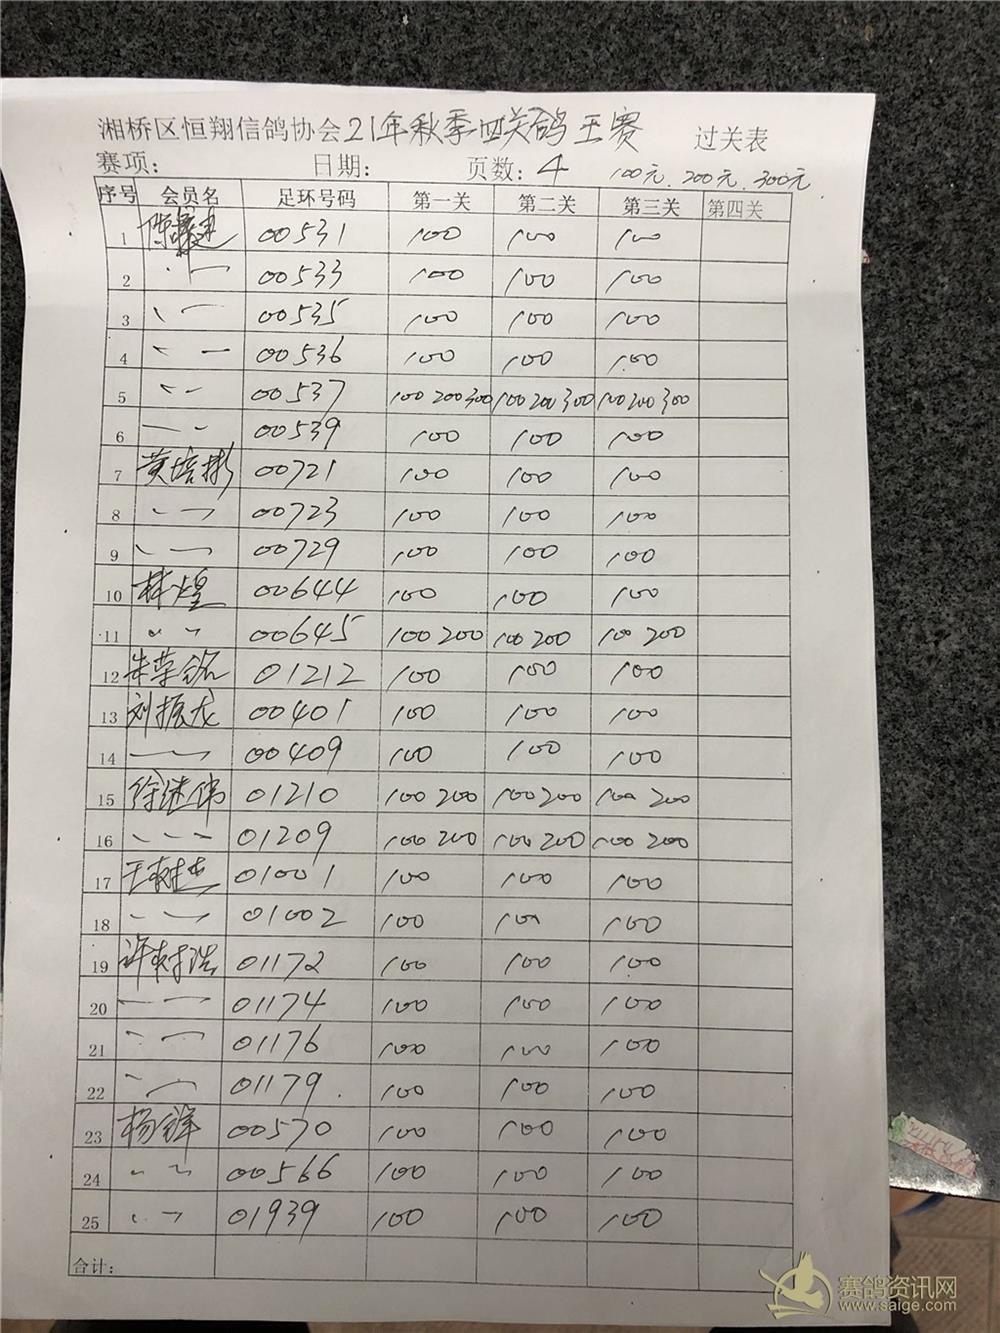 湘桥区恒翔信鸽协会21年秋季四关鸽王赛 过关表
赛项： 日期： 页数：4 100元.200元.300元
序号 会员名 足环号码 第一关 第二关 第三关 第四关
1 00531 100 100 100
2 〃 00533 100 100 100
3 〃 00535 100 100 100
4 〃 00536 100 100 100
5 〃 00537 100 200 300 100 200 300 100 200 300
6 〃 00539 100 100 100
7 黄培彬 00721 100 100 100
8 〃 00723 100 100 100
9 〃 00729 100 100 100
10 林煌 00644 100 100 100
11 〃 00645 100 200 100 200 100 200
12 朱荣铭 01212 100 100 100
13 刘振龙 00401 100 100 100
14 〃 00409 100 100 100
15 徐继伟 01210 100 200 100 200 100 200
16 〃 01209 100 200 100 200 100 200
17 王树杰 01001 100 100 100
18 〃 01002 100 100 100
19 许树浩 01172 100 100 100
20 〃 01174 100 100 100
21 〃 01176 100 100 100
22 〃 01179 100 100 100
23 杨锋 00570 100 100 100
24 〃 00566 100 100 100
25 〃 01939 100 100 100
合计：
赛鸽资讯网
www.saige.com